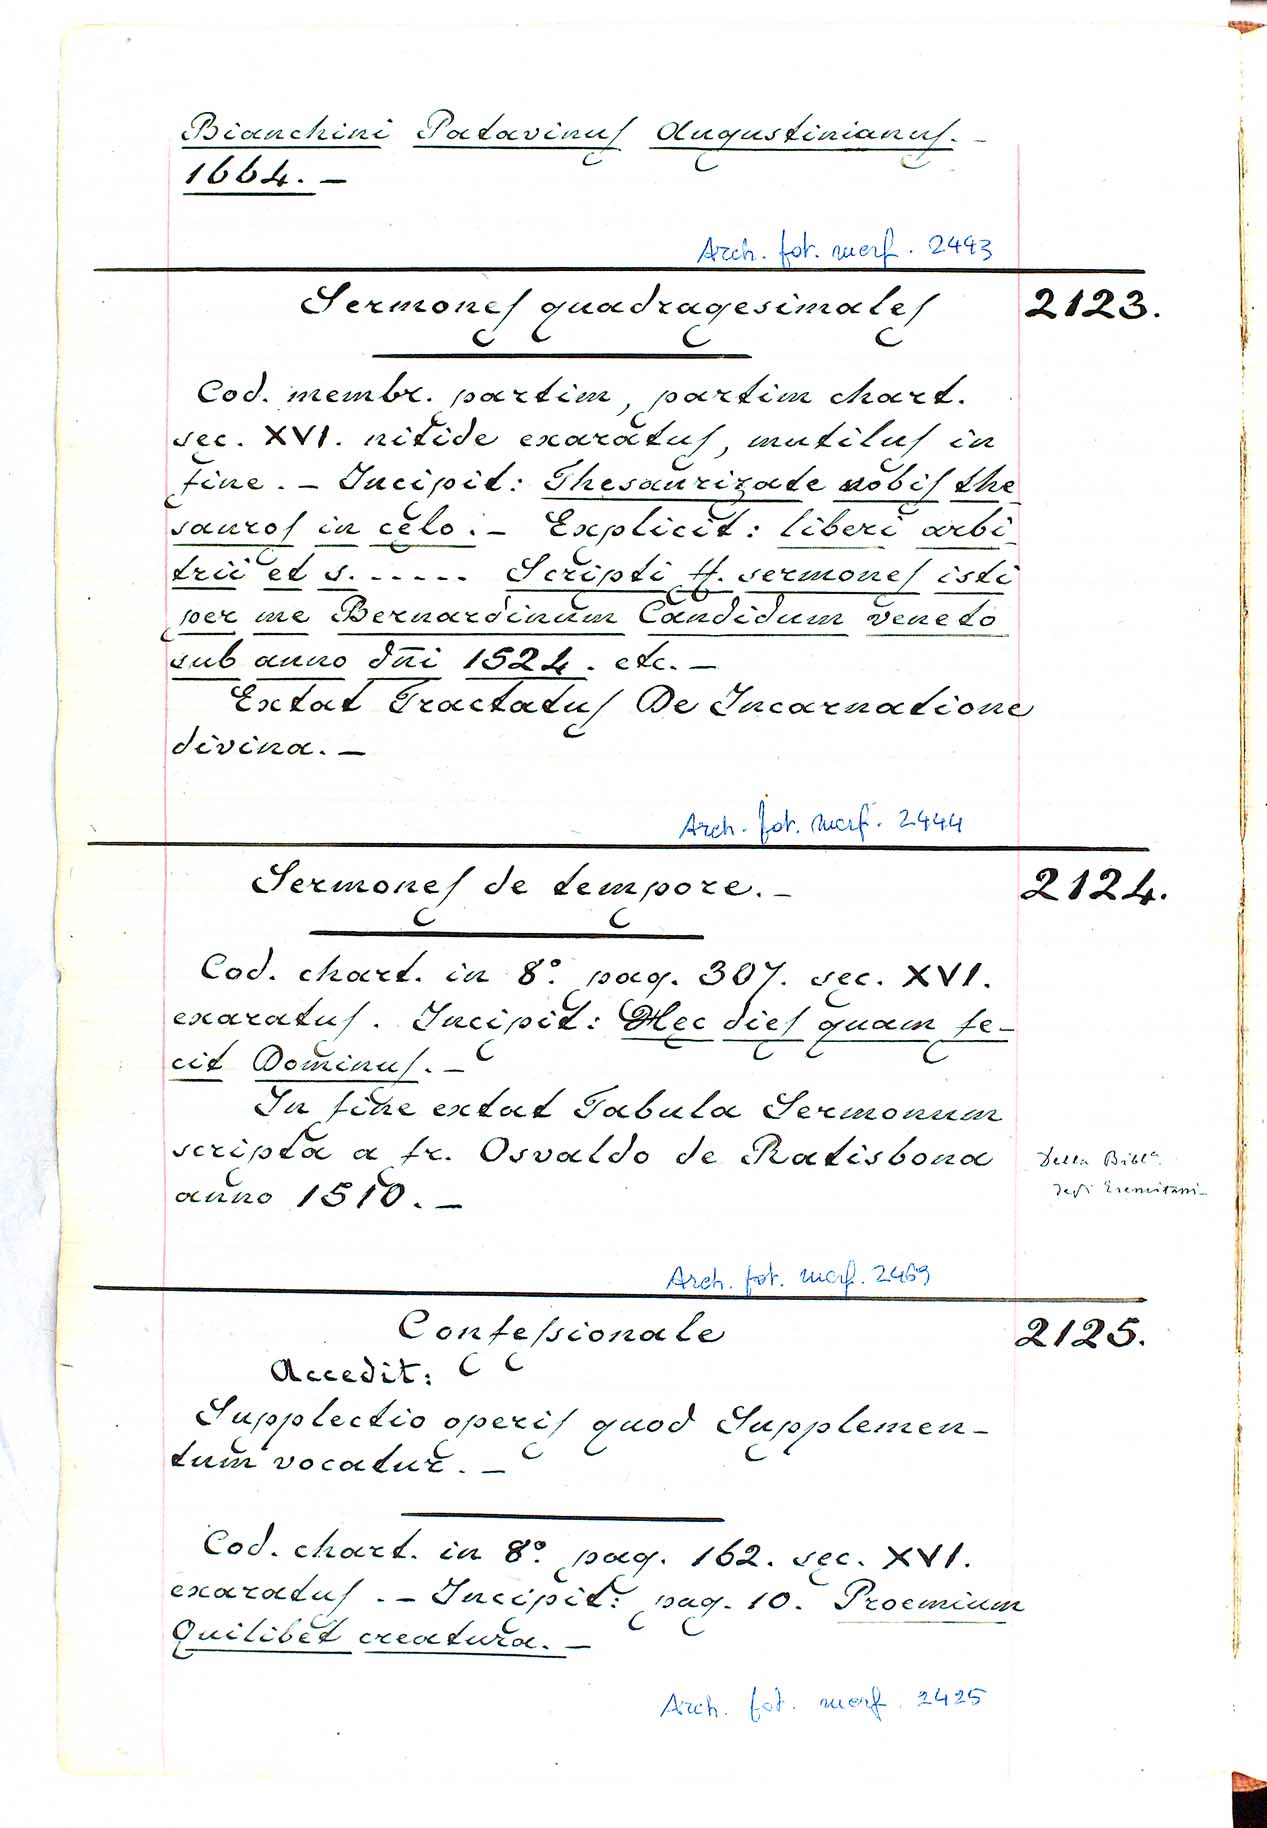 Bianchini Patavinus Augustinianus. –
1664. –
Arch. fot. morf. 2443
Sermones quadragesimales
2123.
Cod. membr. partim, partim chart.
sec. XVI. nitide exaratus, mutilus in
fine. – Incipit: Thesaurizate vobis the
sauros in celo. – Explicit: liberi arbi
trii et s. . . . . . Scripti ff. sermones isti
per me Bernardinum Candidum veneto
sub anno dñi 1524. etc. –
Extat Tractatus De Incarnatione
divina. –
Arch. fot. morf. 2444
Sermones de tempore. –
2124.
Cod. chart. in 8º. pag. 307. sec. XVI.
exaratus. Incipit: Hec dies quam fe–
cit Dominus. –
In fine extat Tabula Sermonum
scripta a fr. Osvaldo de Ratisbona
anno 1510. –
Della Bibl.ª
degli Eremitani –
Arch. fot. morf. 2469
Confessionale
2125.
Accedit:
Supplectio operis quod Supplemen–
tum vocatur. –
Cod. chart. in 8º. pag. 162. sec. XVI.
exaratus. – Incipit: pag. 10. Proemium
Quilibet creatura. –
Arch. fot. morf. 2425